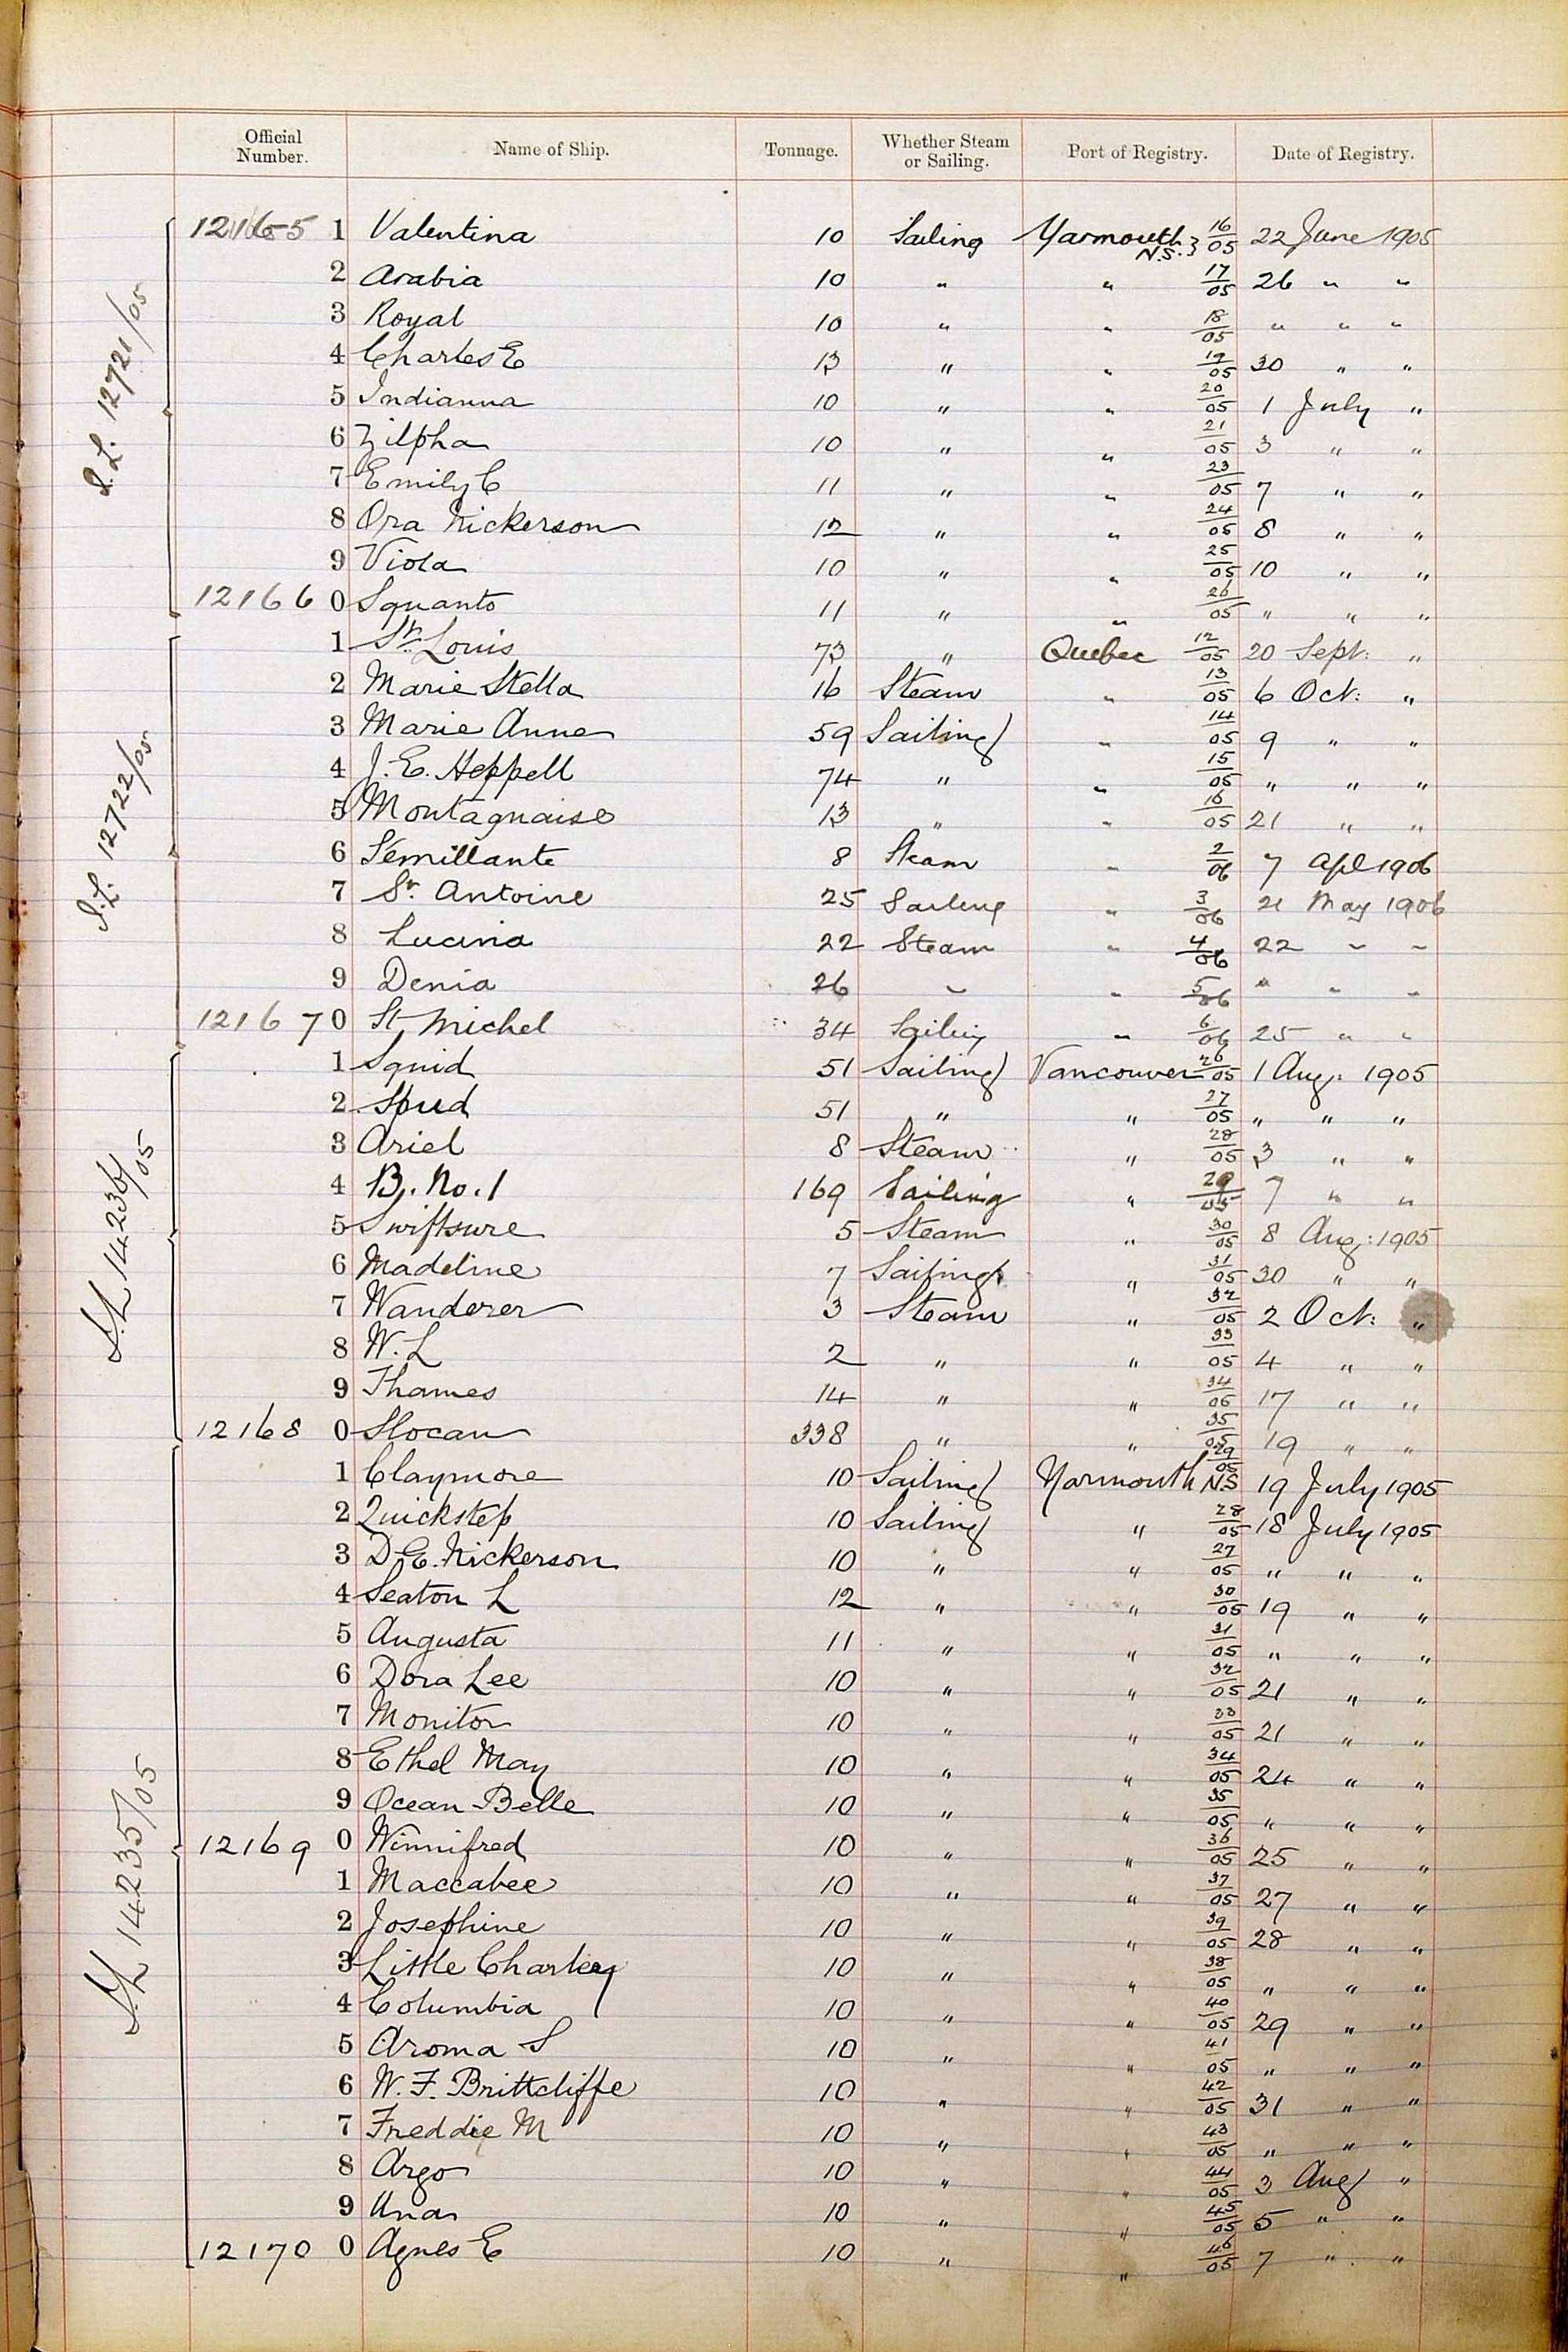 Official Number. Name of Ship. Tonnage. Whether Steam or Sailing. Port of Registry. Date of Registry.
12165 1 Valentina 10 Sailing Yarmouth N.S. } 16/05 22 June 1905
2 Arabia 10 " " 17/05 26 " "
3 Royal 10 " " 18/05 " " "
4 Charles E 13 " " 19/05 30 " "
5 Indianna 10 " " 20/05 1 July "
6 Zilpha 10 " " 21/05 3 " "
7 Emily C 11 " " 23/05 7 " "
8 Ora Nickerson 12 " " 24/05 8 " "
9 Viola 10 " " 25/05 10 " "
12166 0 Squanto 11 " " 26/05 " " "
I.L. 12721/05
1 St. Louis 73 " Quebec 12/05 20 Sept: "
2 Marie Stella 16 Steam " 13/05 6 Oct: "
3 Marie Anne 59 Sailing " 14/05 9 " "
4 J. E. Heppell 74 " " 15/05 " " "
5 Montagnaise 13 " " 16/05 21 " "
6 Semillante 8 Steam " 2/06 7 Apl 1906
7 St. Antoine 25 Sailing " 3/06 21 May 1906
8 Lucina 22 Steam " 4/06 22 " "
9 Denia 26 " " 5/06 " " "
12167 0 St Michel 34 Sailing " 6/06 25 " "
I.L. 12722/05
1 Squid 51 Sailing Vancouver 26/05 1 Aug: 1905
2 Spud 51 " " 27/05 " " "
3 Ariel 8 Steam " 28/05 3 " "
4 B. No. 1 169 Sailing " 29/05 7 " "
5 Swiftsure 5 Steam " 30/05 8 Aug: 1905
6 Madeline 7 Sailing " 31/05 30 " "
7 Wanderer 3 Steam " 32/05 2 Oct: "
8 W. L 2 " " 33/05 4 " "
9 Thames 14 " " 34/05 17 " "
12168 0 Slocan 338 " " 35/05 19 " "
I.L 14236/05
1 Claymore 10 Sailing Yarmouth N.S 29/05 19 July 1905
2 Quickstep 10 Sailing " 28/05 18 July 1905
3 D. E. Nickerson 10 " " 27/05 " " "
4 Seaton L 12 " " 30/05 19 " "
5 Augusta 11 " " 31/05 " " "
6 Dora Lee 10 " " 32/05 21 " "
7 Monitor 10 " " 33/05 21 " "
8 Ethel May 10 " " 34/05 24 " "
9 Ocean Belle 10 " " 35/05 " " "
12169 0 Winnifred 10 " " 36/05 25 " "
1 Maccabee 10 " " 37/05 27 " "
2 Josephine 10 " " 39/05 28 " "
3 Little Charley 10 " " 38/05 " " "
4 Columbia 10 " " 40/05 29 " "
5 Aroma S 10 " " 41/05 " " "
6 W. F. Brittcliffe 10 " " 42/05 31 " "
7 Freddie M 10 " " 43/05 " " "
8 Argo 10 " " 44/05 3 Aug "
9 Una 10 " " 45/05 5 " "
12170 0 Agnes E 10 " " 46/05 7 " "
I.L 14235/05